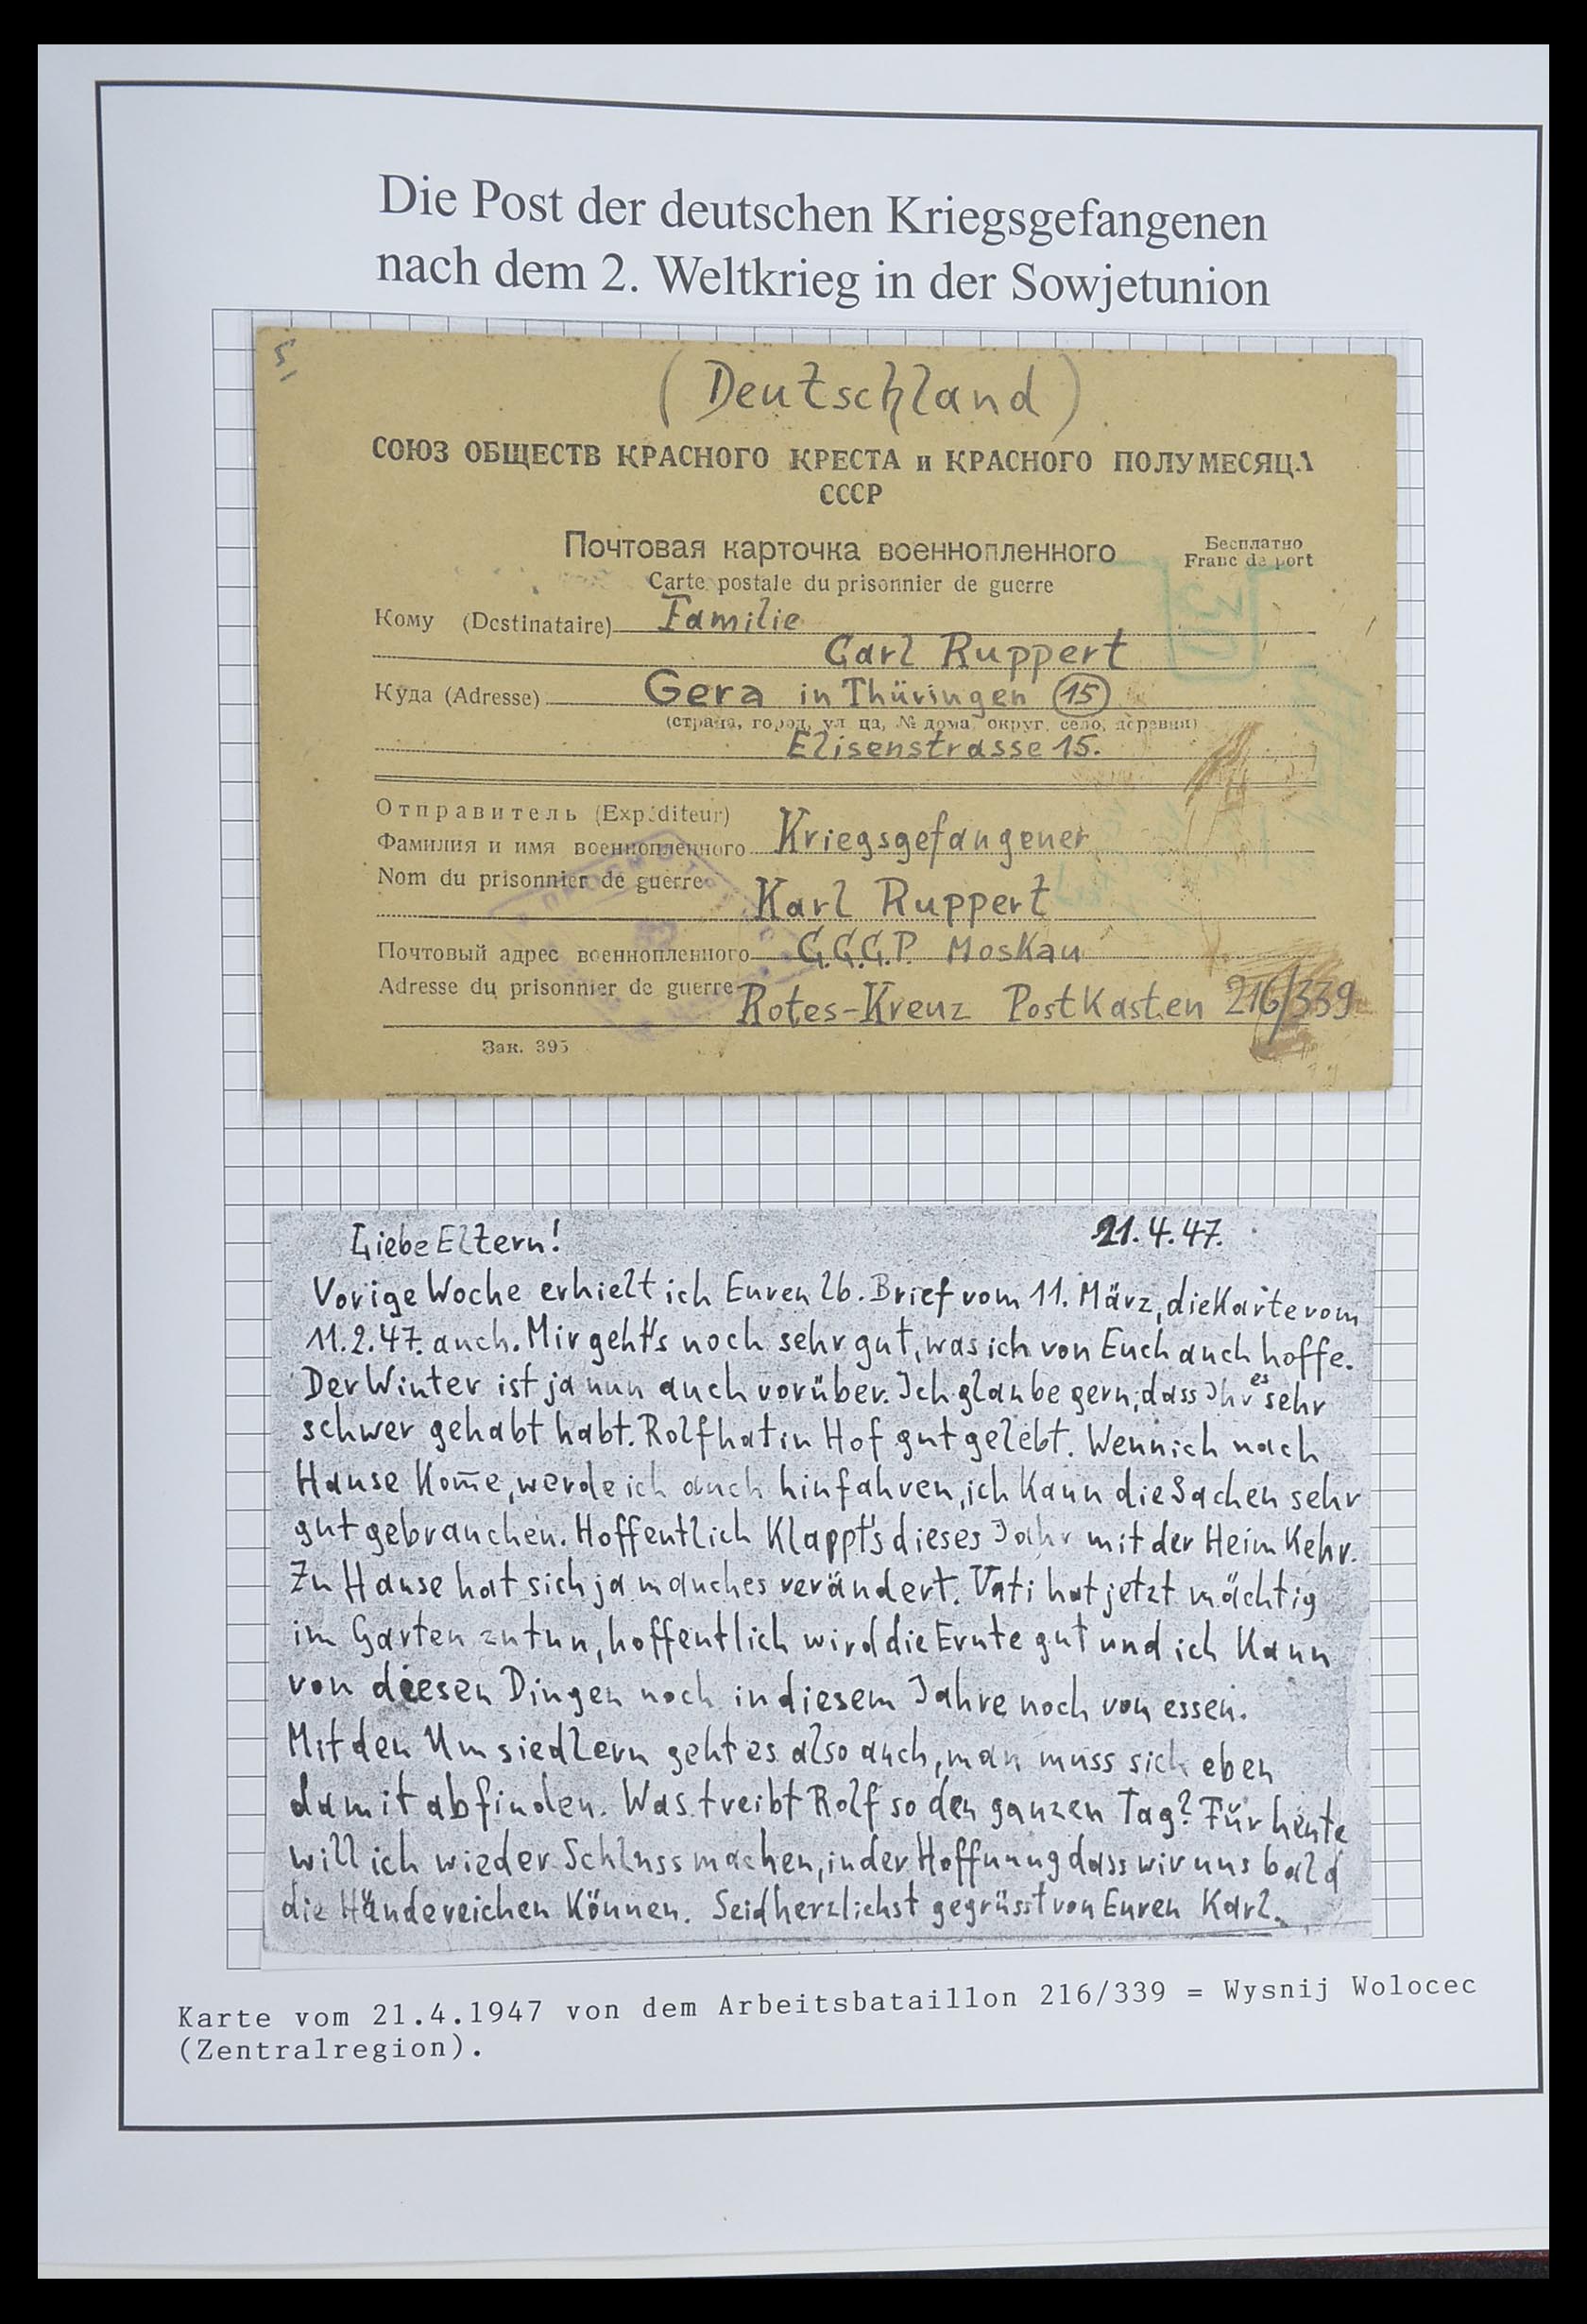 Die Post der deutschen Kriegsgefangenen
nach dem 2. Weltkrieg in der Sowjetunion
(Deutschland)
СОЮЗ ОБЩЕСТВ КРАСНОГО КРЕСТА и КРАСНОГО ПОЛУМЕСЯЦА
СССР
Почтовая карточка военнопленного
Бесплатно
Franc de port
Carte postale du prisonnier de guerre
Кому (Destinataire) Familie
Carl Ruppert
Куда (Adresse) Gera in Thüringen (15)
(страна, город, улица, № дома, округ, село, деревня)
Elisenstrasse 15.
Отправитель (Expéditeur)
Фамилия и имя военнопленного Kriegsgefangener
Nom du prisonnier de guerre
Karl Ruppert
Почтовый адрес военнопленного C.C.C.P. Moskau
Adresse du prisonnier de guerre Rotes-Kreuz Postkasten 216/339
Зак. 395
Liebe Eltern! 21.4.47.
Vorige Woche erhielt ich Euren lb. Brief vom 11. März, die Karte vom
11.2.47. auch. Mir geht's noch sehr gut, was ich von Euch auch hoffe.
Der Winter ist ja nun auch vorüber. Ich glaube gern, dass Ihr es sehr
schwer gehabt habt. Rolf hat in Hof gut gelebt. Wenn ich nach
Hause kom̅e, werde ich auch hinfahren, ich kann die Sachen sehr
gut gebrauchen. Hoffentlich klappt's dieses Jahr mit der Heimkehr.
Zu Hause hat sich ja manches verändert. Vati hat jetzt mächtig
im Garten zu tun, hoffentlich wird die Ernte gut und ich kann
von diesen Dingen noch in diesem Jahre noch von essen.
Mit den Umsiedlern geht es also auch, man muss sich eben
damit abfinden. Was treibt Rolf so den ganzen Tag? Für heute
will ich wieder Schluss machen, in der Hoffnung dass wir uns bald
die Hände reichen können. Seid herzlichst gegrüsst von Euren Karl.
Karte vom 21.4.1947 von dem Arbeitsbataillon 216/339 = Wysnij Wolocec
(Zentralregion).